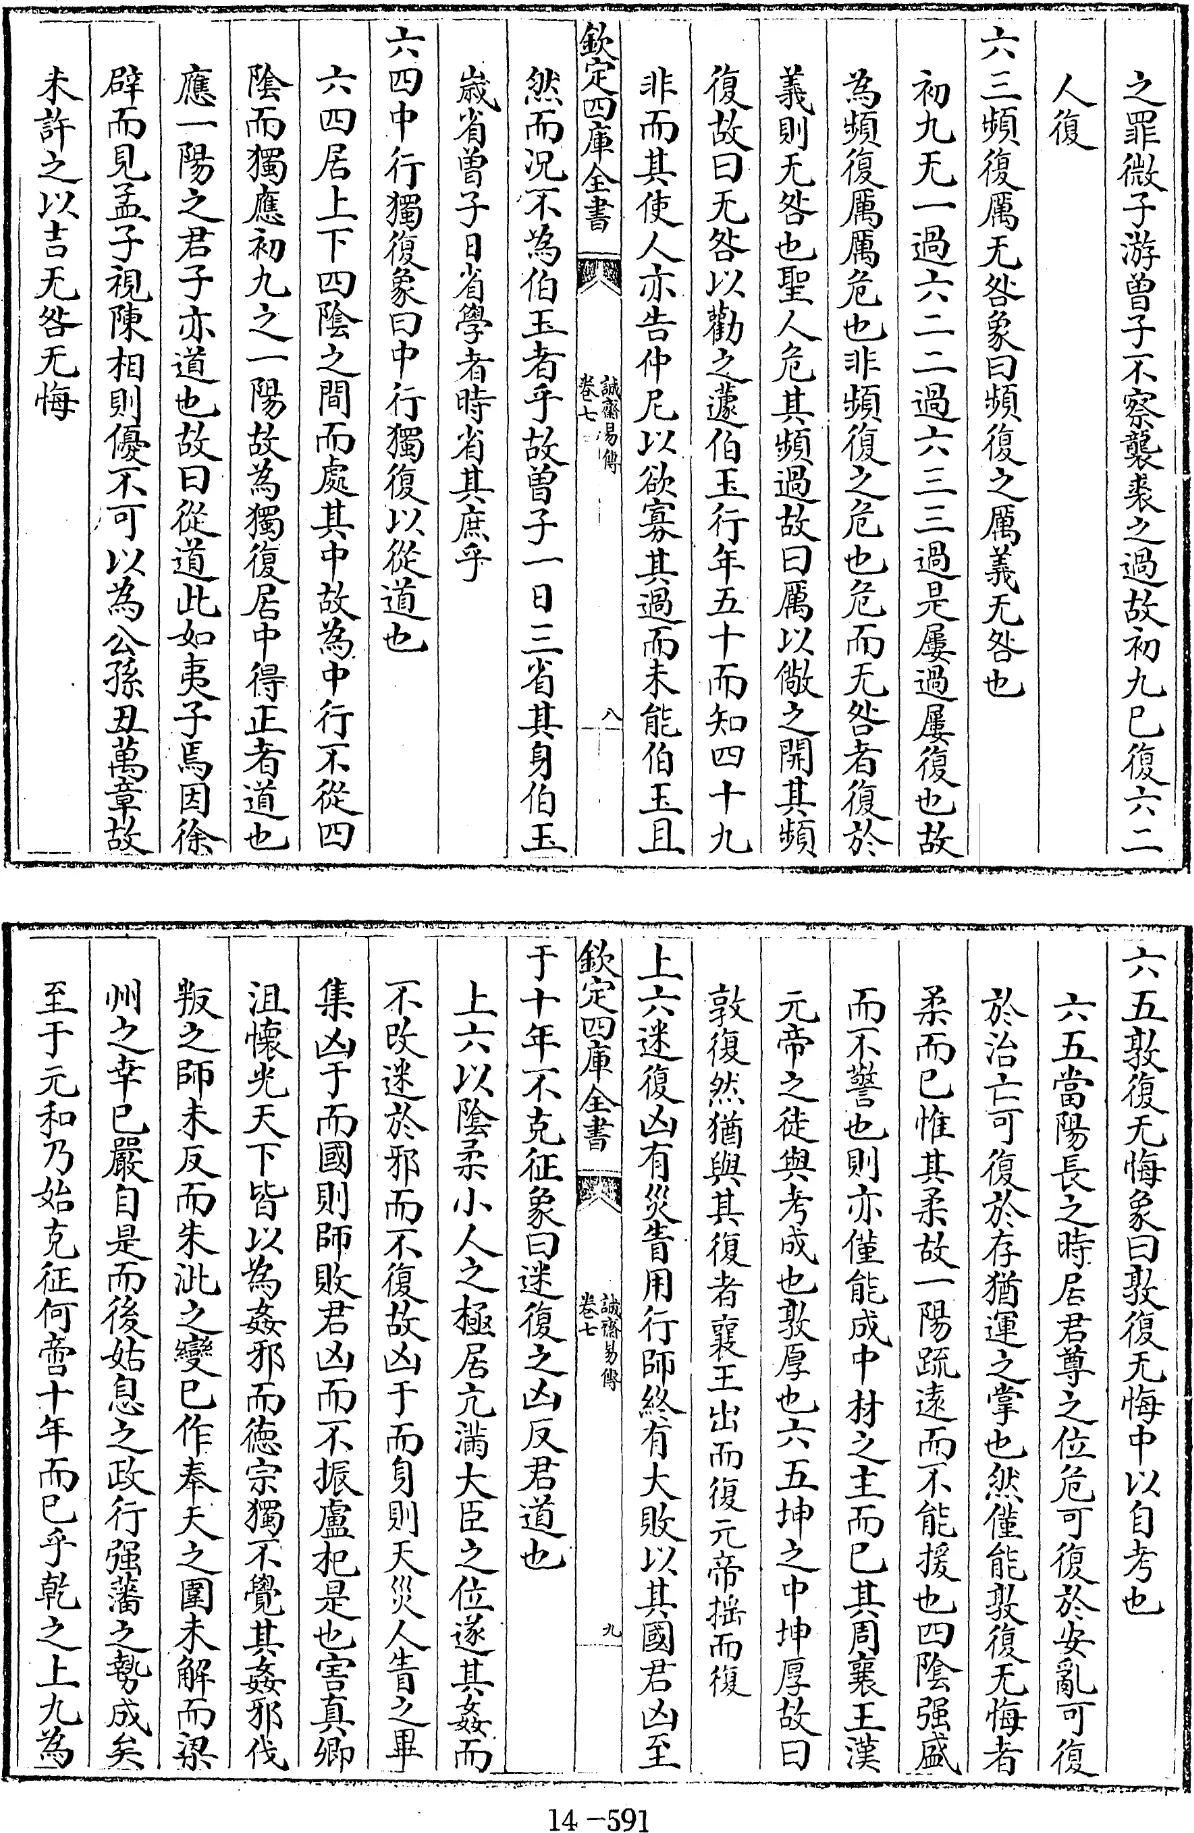 之罪微子游曽子不察襲裘之過故初九已復六二
人復
六三頻復厲无咎象曰頻復之厲義无咎也
初九无一過六二二過六三三過是屢過屢復也故
為頻復厲厲危也非頻復之危也危而无咎者復於
義則无咎也聖人危其頻過故曰厲以儆之開其頻
復故曰无咎以勸之蘧伯玉行年五十而知四十九
非而其使人亦告仲尼以欲寡其過而未能伯玉且
欽定四庫全書
誠齋易傳
卷七
八
然而况不為伯玉者乎故曽子一日三省其身伯玉
嵗省曽子日省學者時省其庶乎
六四中行獨復象曰中行獨復以從道也
六四居上下四陰之間而處其中故為中行不從四
陰而獨應初九之一陽故為獨復居中得正者道也
應一陽之君子亦道也故曰從道此如夷子焉因徐
辟而見孟子視陳相則優不可以為公孫丑萬章故
未許之以吉无咎无悔
六五敦復无悔象曰敦復无悔中以自考也
六五當陽長之時居君尊之位危可復於安亂可復
於治亡可復於存猶運之掌也然僅能敦復无悔者
柔而已惟其柔故一陽䟽逺而不能援也四陰强盛
而不警也則亦僅能成中材之主而已其周襄王漢
元帝之徒與考成也敦厚也六五坤之中坤厚故曰
敦復然猶與其復者襄王出而復元帝揺而復
上六迷復凶有災眚用行師終有大敗以其國君凶至
欽定四庫全書
誠齋易傳
卷七
九
于十年不克征象曰迷復之凶反君道也
上六以陰柔小人之極居亢滿大臣之位遂其姦而
不改迷於邪而不復故凶于而身則天災人眚之畢
集凶于而國則師敗君凶而不振盧杞是也害真卿
沮懷光天下皆以為姦邪而徳宗獨不覺其姦邪伐
叛之師未反而朱泚之變已作奉天之圍未解而梁
州之幸已嚴自是而後姑息之政行强藩之勢成矣
至于元和乃始克征何啻十年而已乎乾之上九為
14-591